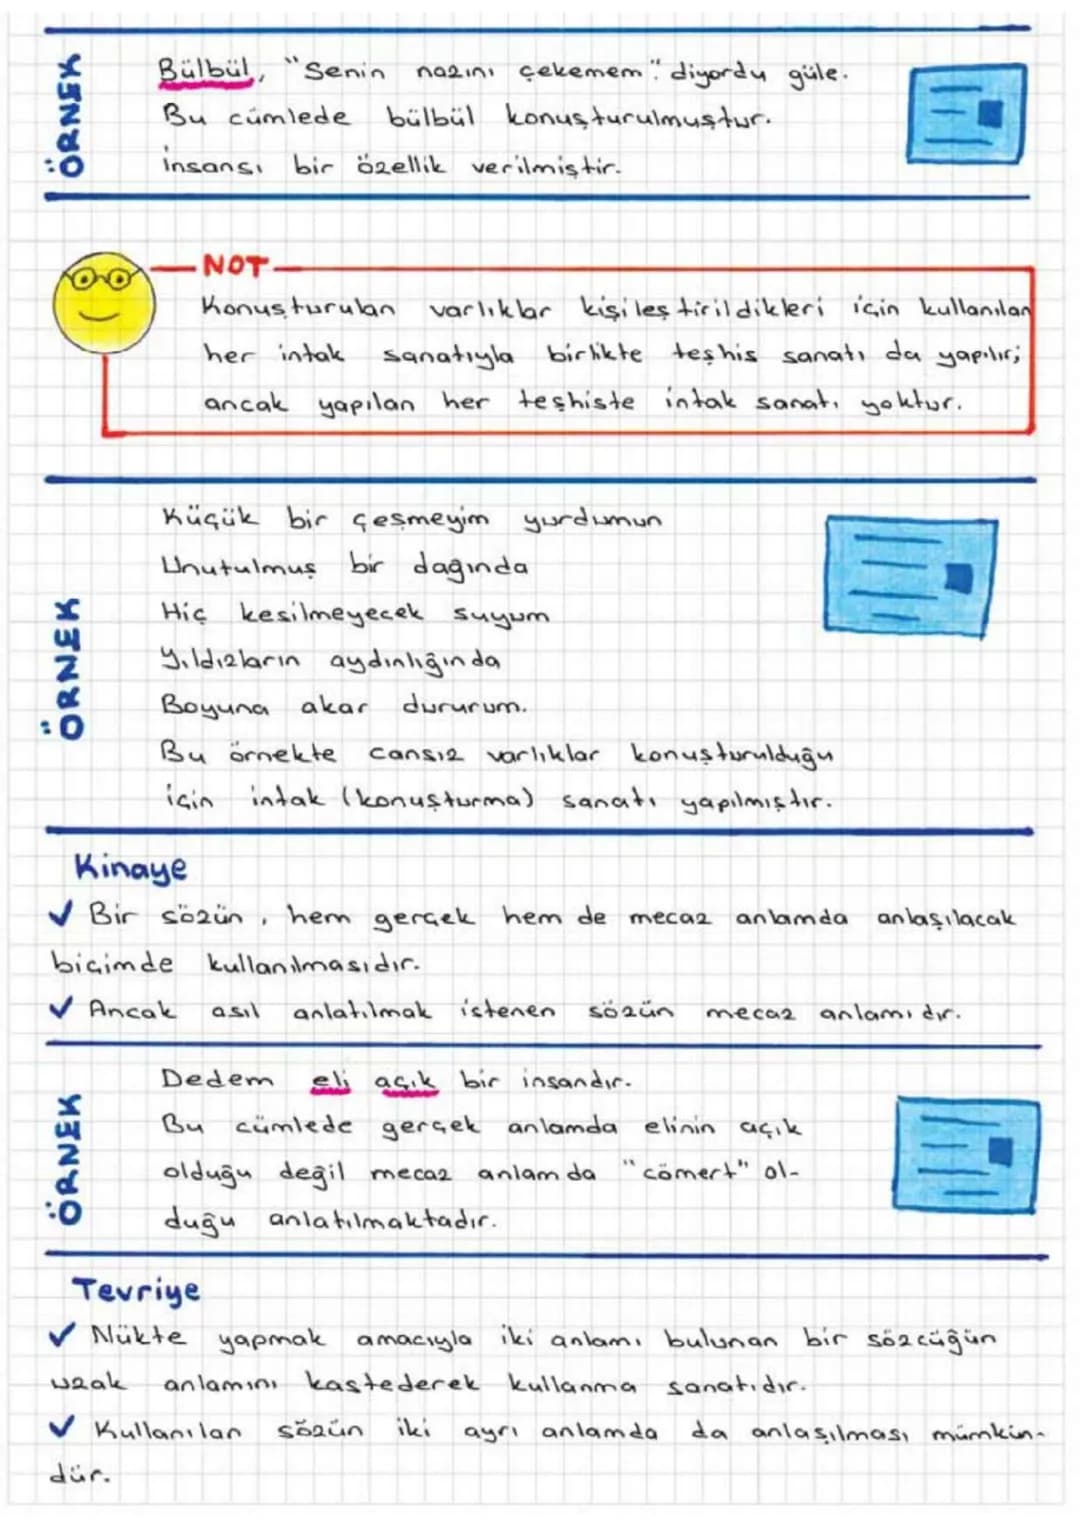 ÖRNEK
Bülbül, "Senin nazını çekemem." diyordu güle.
Bu cümlede bülbül konuşturulmuştur.
İnsansı bir özellik verilmiştir.
NOT
Konuşturulan varlıklar kişileştirildikleri için kullanılan
her intak sanatıyla birlikte teşhis sanatı da yapılır;
ancak yapılan her teşhiste intak sanatı yoktur.
ÖRNEK
Küçük bir çeşmeyim yurdumun
Unutulmuş bir dağında
Hiç kesilmeyecek suyum
Yıldızların aydınlığında
Boyuna akar dururum.
Bu örnekte cansız varlıklar konuşturulduğu
için intak (konuşturma) sanatı yapılmıştır.
Kinaye
✓ Bir sözün, hem gerçek hem de mecaz anlamda anlaşılacak
biçimde kullanılmasıdır.
✓ Ancak asıl anlatılmak istenen sözün mecaz anlamıdır.
ÖRNEK
Dedem eli açık bir insandır.
Bu cümlede gerçek anlamda elinin açık
olduğu değil mecaz anlamda "cömert" ol-
duğu anlatılmaktadır.
Tevriye
✓ Nükte yapmak amacıyla iki anlamı bulunan bir sözcüğün
uzak anlamını kastederek kullanma sanatıdır.
✓ Kullanılan sözün iki ayrı anlamda da anlaşılması mümkün-
dür.